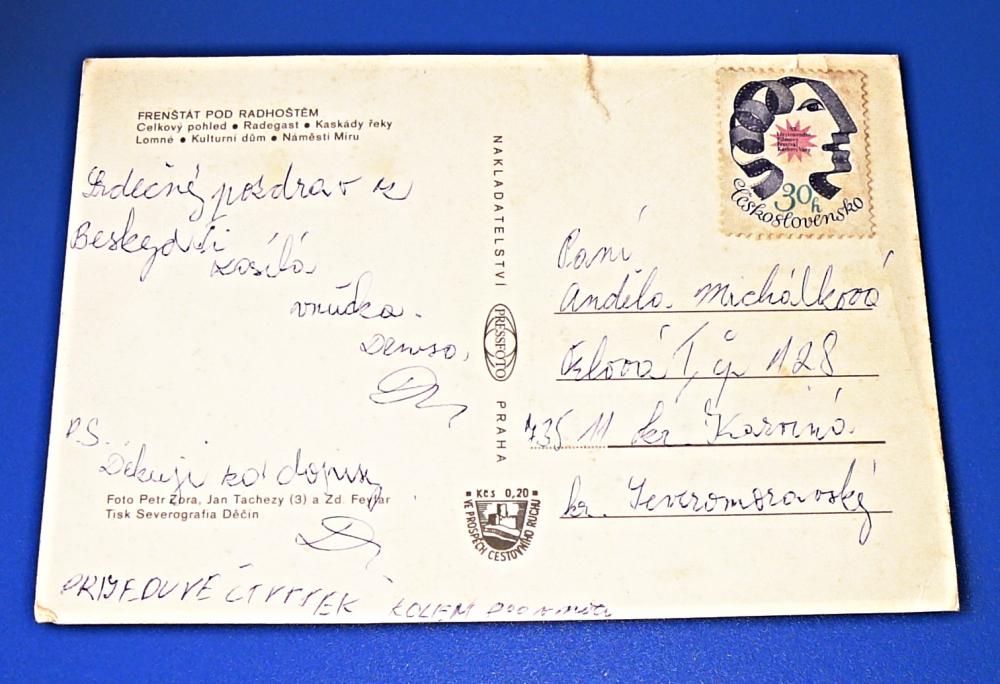 FRENŠTÁT POD RADHOŠTĚM
Celkový pohled ● Radegast ● Kaskády řeky
Lomné ● Kulturní dům ● Náměstí Míru
Srdečný pozdrav z
Beskyd Ti
zasílá
vnučka.
P.S.
Děkuji za dopisy
Foto Petr Zora, Jan Tachezy (3) a Zd. Feyfar
Tisk Severografia Děčín
PRIJEDU VE ČTVRTEK KOLEM
NAKLADATELSTVÍ PRESSFOTO PRAHA
■ Kčs 0,20 ■
VE PROSPĚCH CESTOVNÍHO RUCHU
30h
Československo
Paní
Anděla Michálková
Orlová I, čp 128
735 11 okr. Karviná
kr. Severomoravský